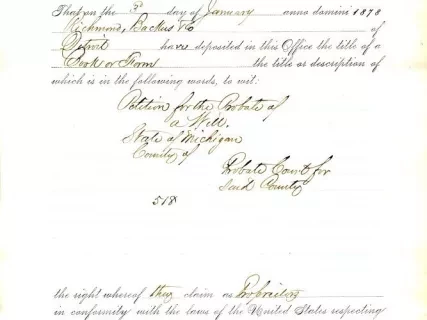 That on the 3d day of January anno domini 1878
Richmond, Backus & Co of
Detroit have deposited in this Office the title of a
Book or Form the title or description of
which is in the following words, to wit:
Petition for the Probate of
a Will.
State of Michigan
County of
Probate Court for
Said County
518
the right whereof they claim as Proprietors
in conformity with the laws of the United States respecting